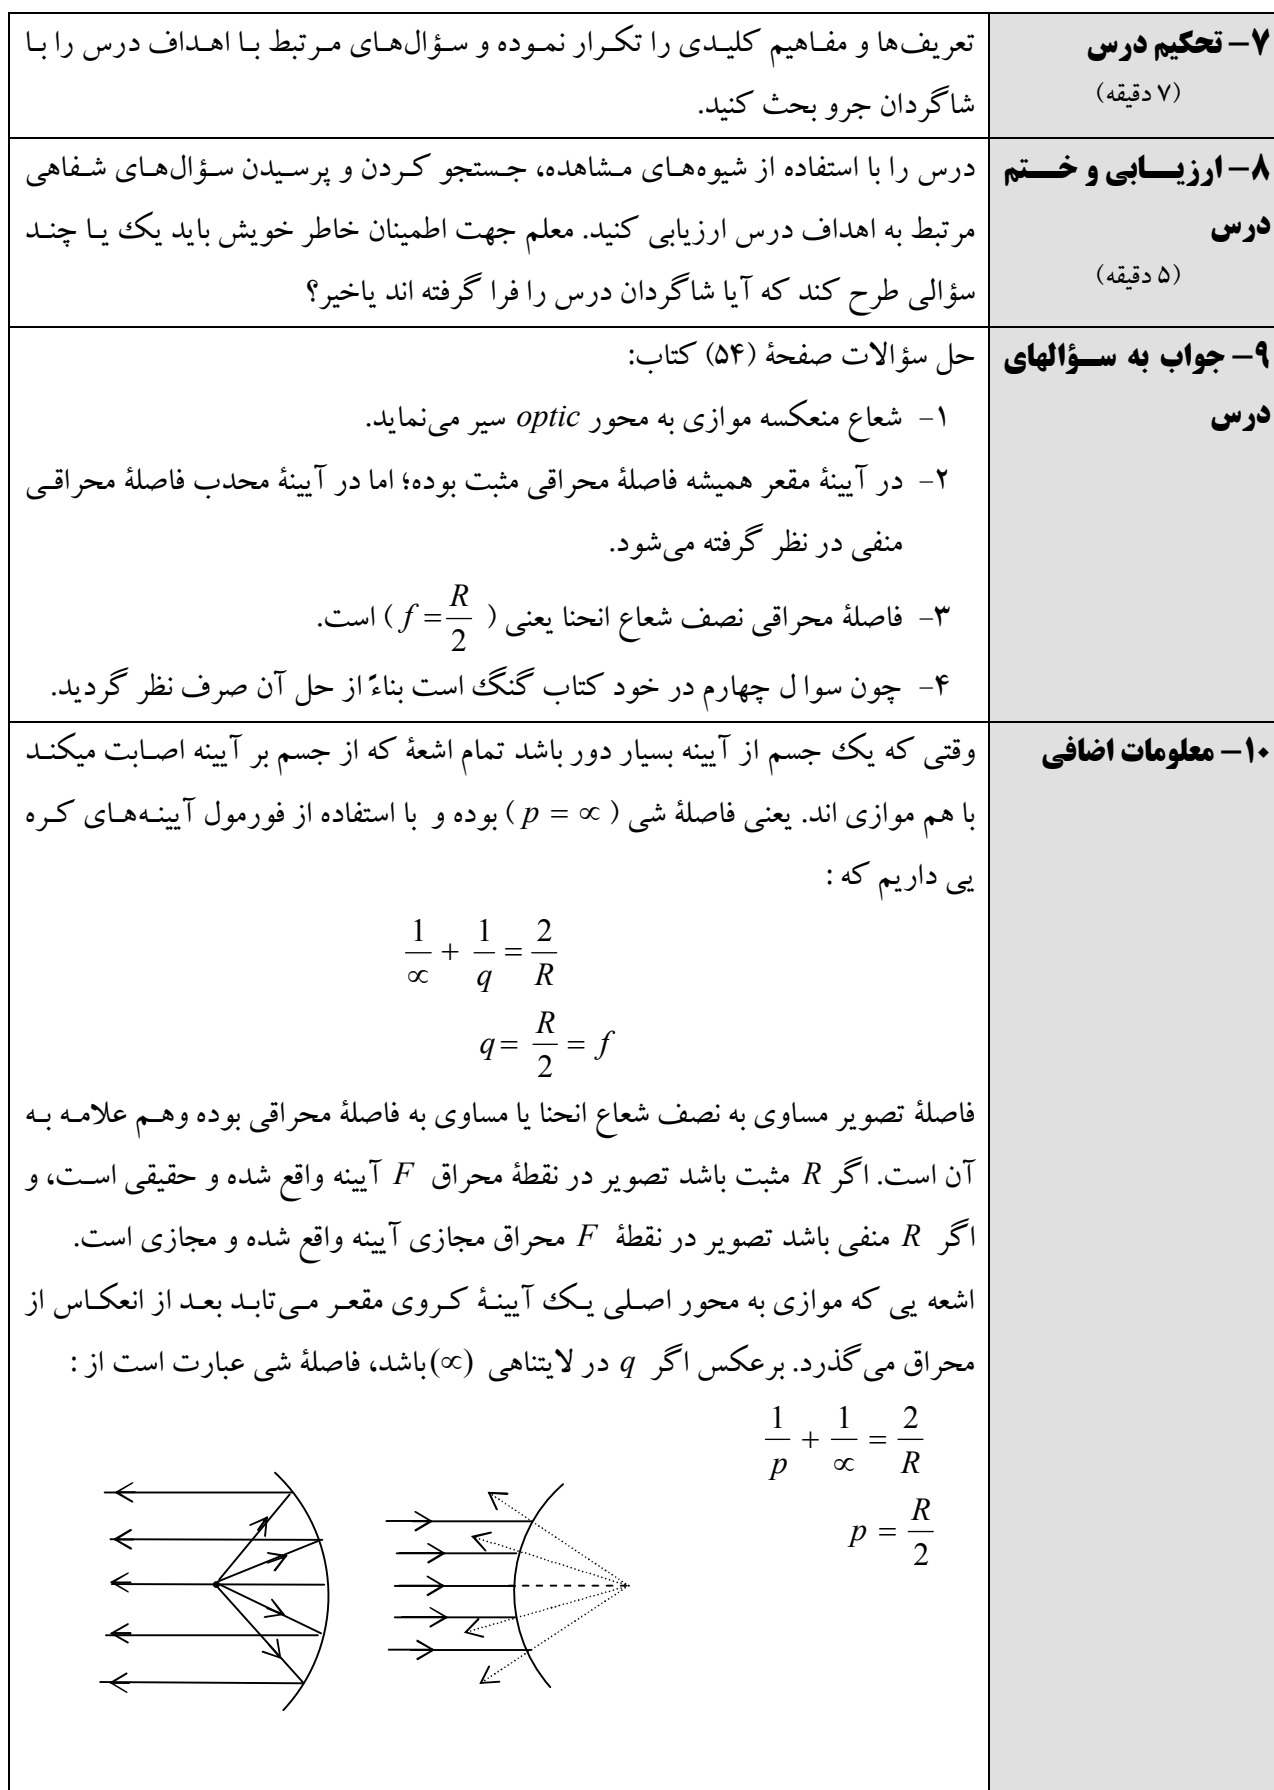 ۷- تحکیم درس
(۷ دقیقه)
تعریف‌ها و مفاهیم کلیدی را تکرار نموده و سؤال‌های مرتبط با اهداف درس را با
شاگردان جرو بحث کنید.
۸- ارزیابی و ختم
درس
(۵ دقیقه)
درس را با استفاده از شیوه‌های مشاهده، جستجو کردن و پرسیدن سؤال‌های شفاهی
مرتبط به اهداف درس ارزیابی کنید. معلم جهت اطمینان خاطر خویش باید یک یا چند
سؤالی طرح کند که آیا شاگردان درس را فرا گرفته اند یاخیر؟
۹- جواب به سؤالهای
درس
حل سؤالات صفحۀ (۵۴) کتاب:
۱- شعاع منعکسه موازی به محور optic سیر می‌نماید.
۲- در آیینۀ مقعر همیشه فاصلۀ محراقی مثبت بوده؛ اما در آیینۀ محدب فاصلۀ محراقی
منفی در نظر گرفته می‌شود.
۳- فاصلۀ محراقی نصف شعاع انحنا یعنی ( f = R/2 ) است.
۴- چون سوا ل چهارم در خود کتاب گنگ است بناءً از حل آن صرف نظر گردید.
۱۰- معلومات اضافی
وقتی که یک جسم از آیینه بسیار دور باشد تمام اشعۀ که از جسم بر آیینه اصابت میکند
با هم موازی اند. یعنی فاصلۀ شی ( p = ∝ ) بوده و با استفاده از فورمول آیینه‌های کره
یی داریم که :
1/∝ + 1/q = 2/R
q = R/2 = f
فاصلۀ تصویر مساوی به نصف شعاع انحنا یا مساوی به فاصلۀ محراقی بوده وهم علامه به
آن است. اگر R مثبت باشد تصویر در نقطۀ محراق F آیینه واقع شده و حقیقی است، و
اگر R منفی باشد تصویر در نقطۀ F محراق مجازی آیینه واقع شده و مجازی است.
اشعه یی که موازی به محور اصلی یک آیینۀ کروی مقعر می‌تابد بعد از انعکاس از
محراق می‌گذرد. برعکس اگر q در لایتناهی (∝) باشد، فاصلۀ شی عبارت است از :
1/p + 1/∝ = 2/R
p = R/2